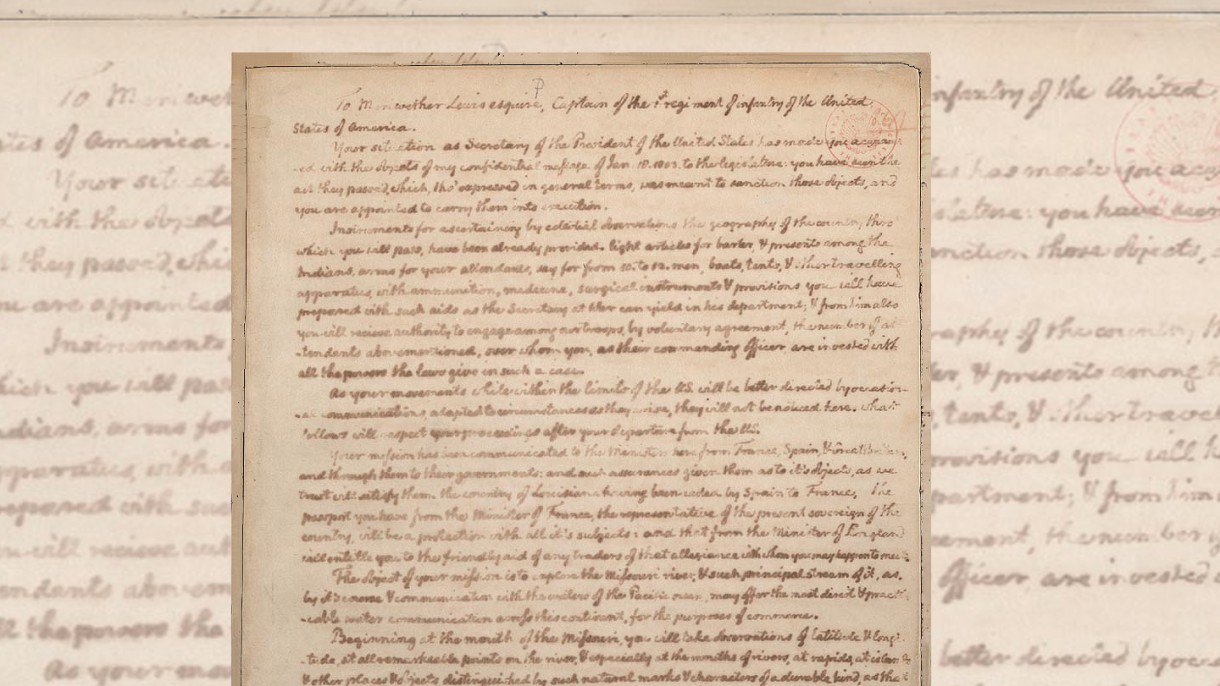 To Meriwether Lewis esquire, Captain of the 1st regiment of infantry of the United
States of America.
Your situation as Secretary of the President of the United States has made you acquaint
-ed with the objects of my confidential message of Jan. 18. 1803. to the legislature: you have seen the
act they passed, which, tho' expressed in general terms, was meant to sanction those objects, and
you are appointed to carry them into execution.
Instruments for ascertaining by celestial observations the geography of the country, thro'
which you will pass, have been already provided. light articles for barter, & presents among the
Indians, arms for your attendants, say for from 10. to 12. men, boats, tents, & other travelling
apparatus, with ammunition, medicine, surgical instruments & provisions you will have
prepared with such aids as the Secretary at War can yield in his department; & from him also
you will recieve authority to engage among our troops, by voluntary agreement, the number of at-
-tendants abovementioned, over whom you, as their commanding officer are invested with
all the powers the laws give in such a case.
As your movements while within the limits of the US. will be better directed by occasion-
-al communications, adapted to circumstances as they arise, they will not be noticed here. what
follows will respect your proceedings after your departure from the US.
Your mission has been communicated to the Ministers here from France, Spain, & Great Britain,
and through them to their governments: and such assurances given them as to it's objects, as we
trust will satisfy them. the country of Louisiana having been ceded by Spain to France, the
passport you have from the Minister of France, the representative of the present sovereign of the
country, will be a protection with all it's subjects: and that from the Minister of England
will entitle you to the friendly aid of any traders of that allegiance with whom you may happen to meet.
The object of your mission is to explore the Missouri river, & such principal stream of it, as,
by it's course & communication with the waters of the Pacific ocean, may offer the most direct & practi-
-cable water communication across this continent, for the purposes of commerce.
Beginning at the mouth of the Missouri, you will take observations of latitude & longi-
-tude, at all remarkeable points on the river, & especially at the mouths of rivers, at rapids, at islands
& other places & objects distinguished by such natural marks & characters of a durable kind, as that